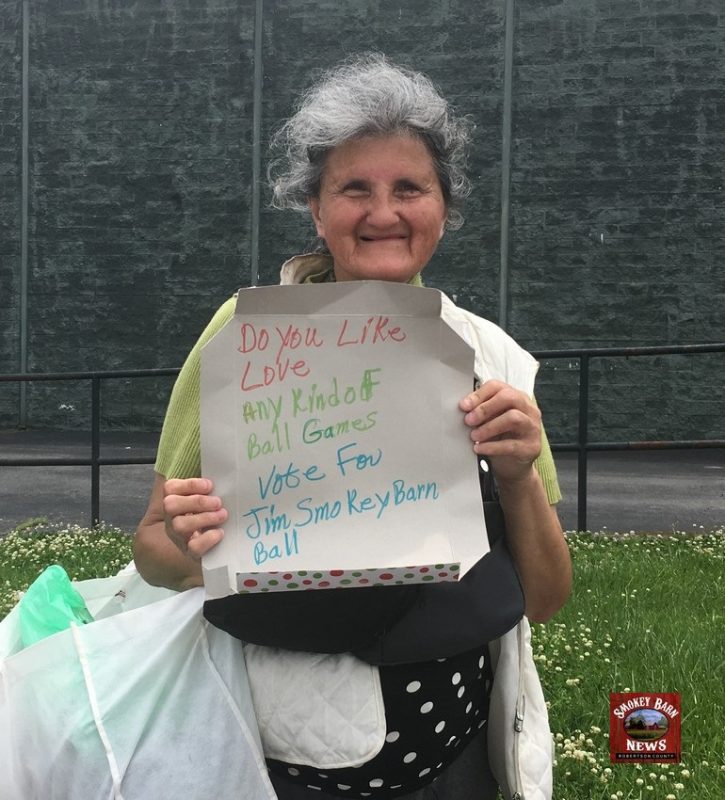 Do you Like
Love
Any Kind of
Ball Games
Vote For
Jim Smokey Barn
Ball
SMOKEY BARN
NEWS
ROBERTSON COUNTY